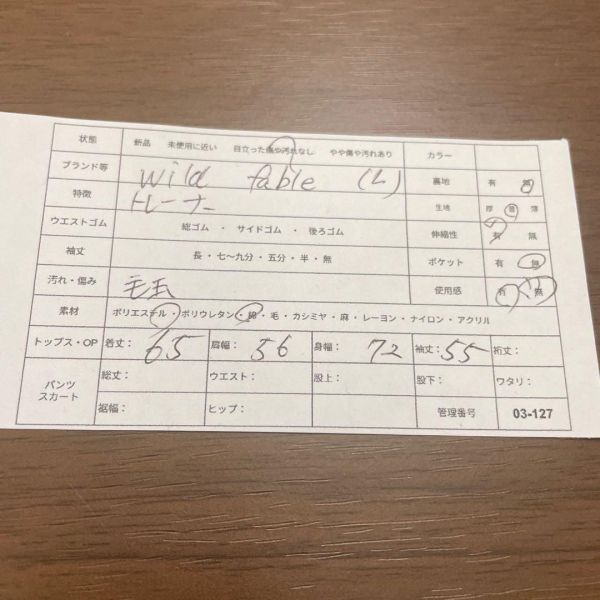 状態 新品 未使用に近い 目立った傷や汚れなし やや傷や汚れあり カラー
ブランド等 wild fable (L) 裏地 有 無
特徴 トレーナー 生地 厚 普 薄
ウエストゴム 総ゴム ・ サイドゴム ・ 後ろゴム 伸縮性 有 無
袖丈 長・七〜九分・五分・半・無 ポケット 有 無
汚れ・傷み 毛玉 使用感 有 無
素材 ポリエステル・ポリウレタン・綿・毛・カシミヤ・麻・レーヨン・ナイロン・アクリル
トップス・OP 着丈: 65 肩幅: 56 身幅: 72 袖丈: 55 裄丈:
パンツ スカート 総丈: ウエスト: 股上: 股下: ワタリ:
裾幅: ヒップ: 管理番号 03-127